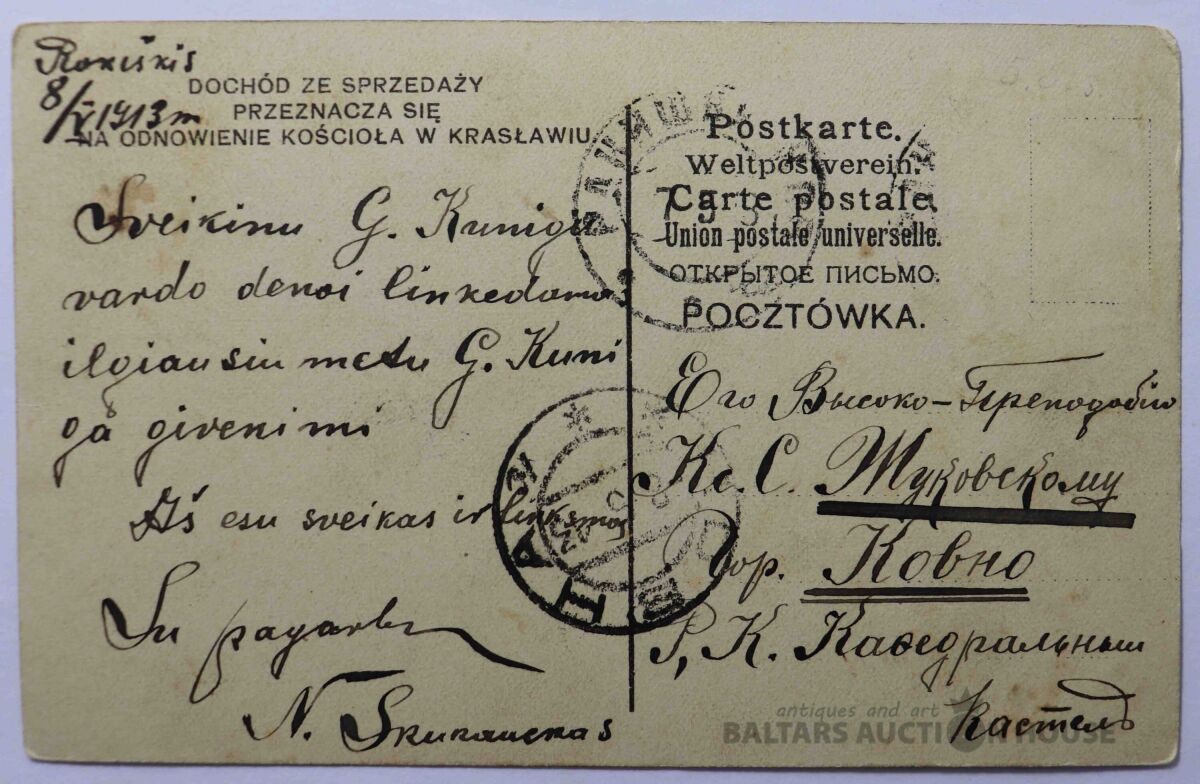 Rokiškis
8/V 1913 m
DOCHÓD ZE SPRZEDAŻY
PRZEZNACZA SIĘ
NA ODNOWIENIE KOŚCIOŁA W KRASŁAWIU
Sveikinu G. Kunigu
vardo denoi linkedamas
ilgiausiu metu G. Kuni
gą givenimi
Aš esu sveikas ir linksmas
Su pagarba
N.
Postkarte.
Weltpostverein.
Carte postale.
Union postale universelle.
ОТКРЫТОЕ ПИСЬМО.
POCZTÓWKA.
Его Высоко-Преподобію
Кс. С. Жуковскому
Гор. Ковно
Р, К. Кафедральный
Костелъ
КОВНА
antiques and art
BALTARS AUCTION HOUSE